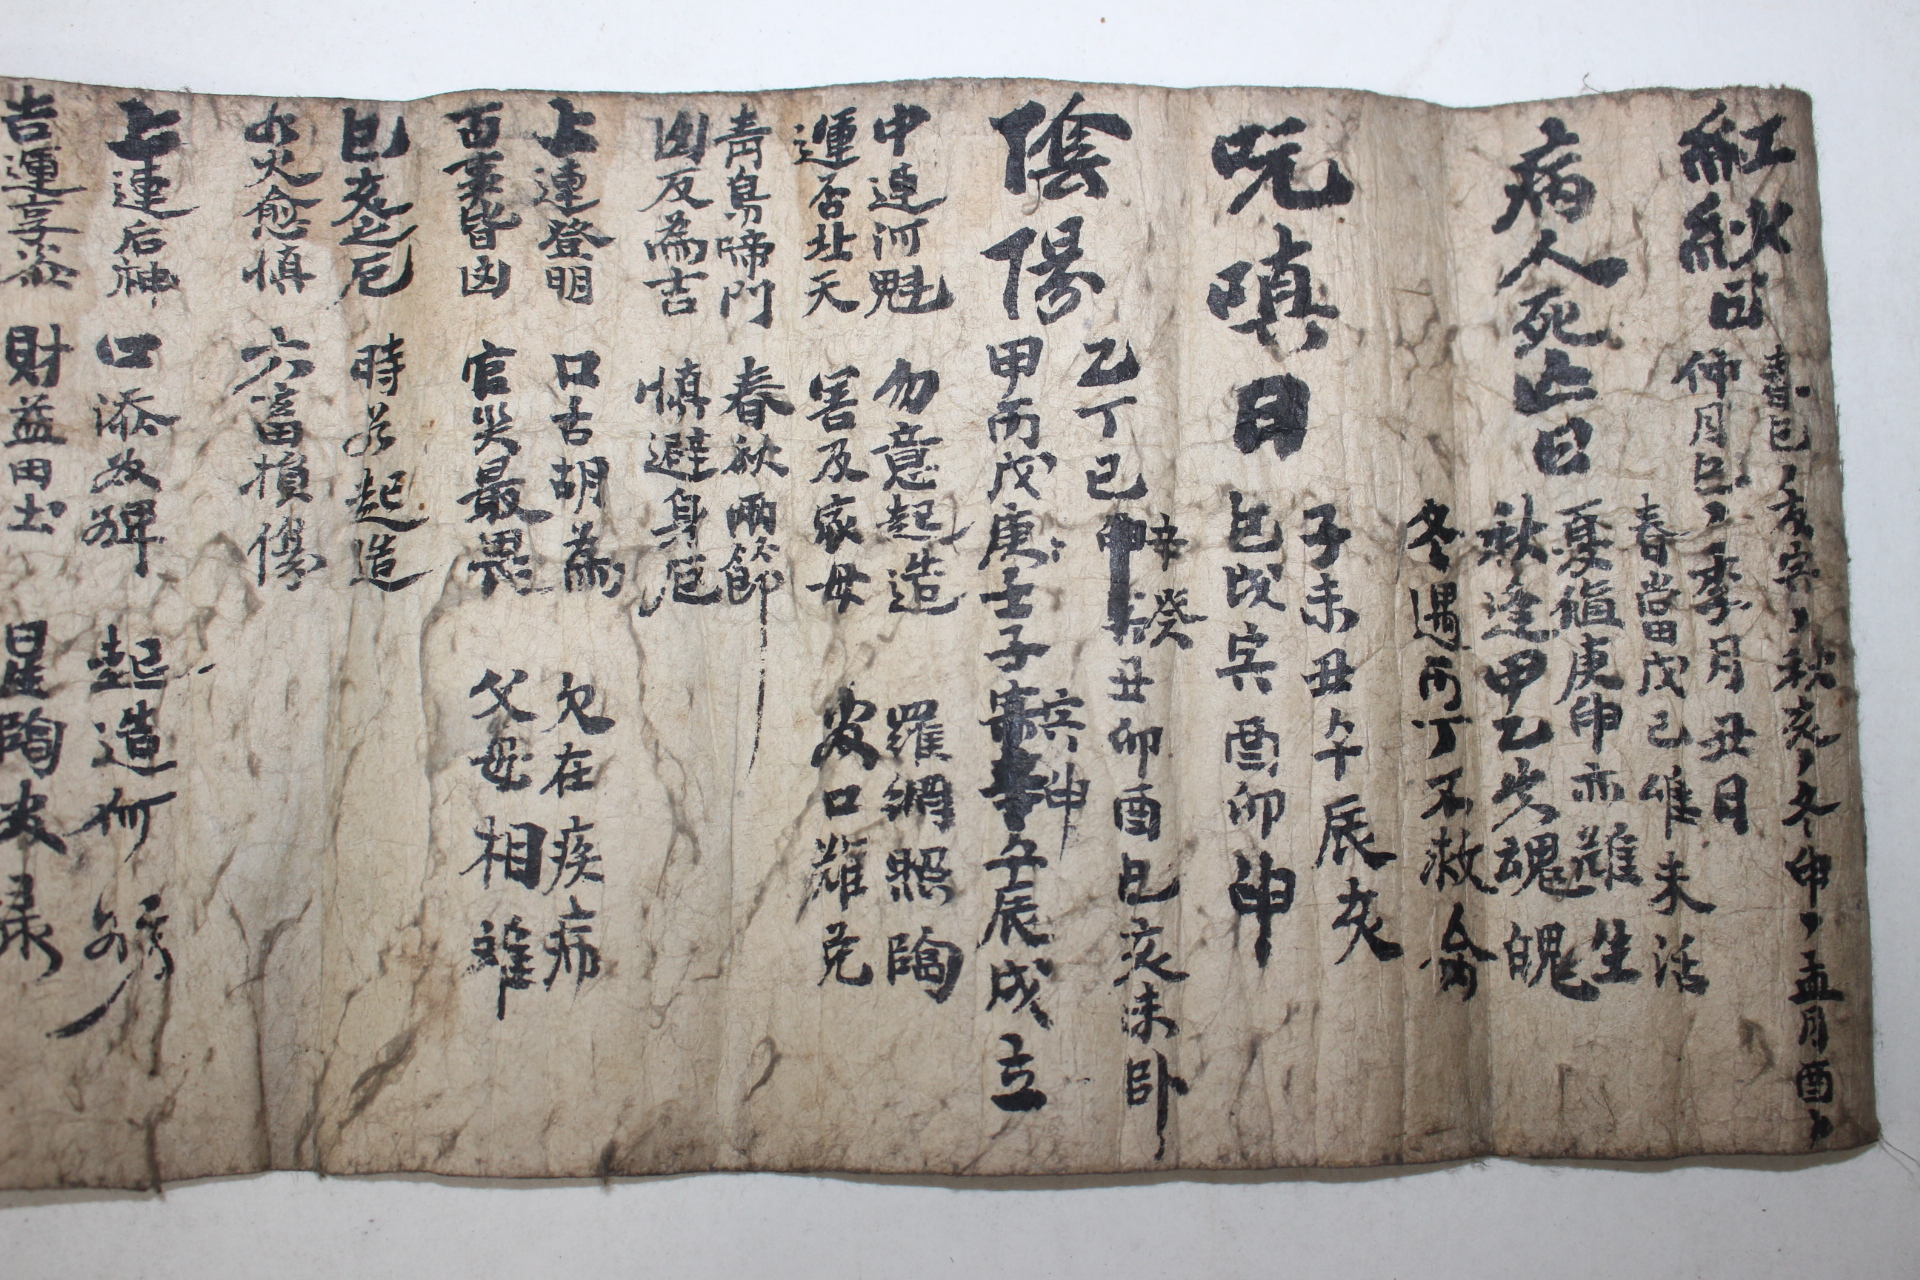 紅紗日
春巳ヽ亥 秋亥ヽ冬申ヽ孟月酉ヽ
仲月巳ヽ季月丑日
病人死亡日
春當戊己 未活
夏值庚申亦難生
秋逢甲乙失魂魄
冬遇丙丁不救命
呪嗔日
子未丑午辰亥
巳戌寅酉卯申
陰陽
乙丁己辛癸丑卯酉巳亥未卧
甲丙戊庚壬子寅申午辰戌立
中連河魁 勿意起造 羅網照臨
運否壯天 害及家母 口難免
靑鳥啼門 春秋兩節
凶反為吉 愼避身厄
上連登明 口舌胡為 欠在疾病
百事皆凶 官災最畏 父母相離
巳亥之厄 時 起造
水火愈愼 六畜損傷
上連后神 口添 起造何
吉運享 財益田土 星臨 祿